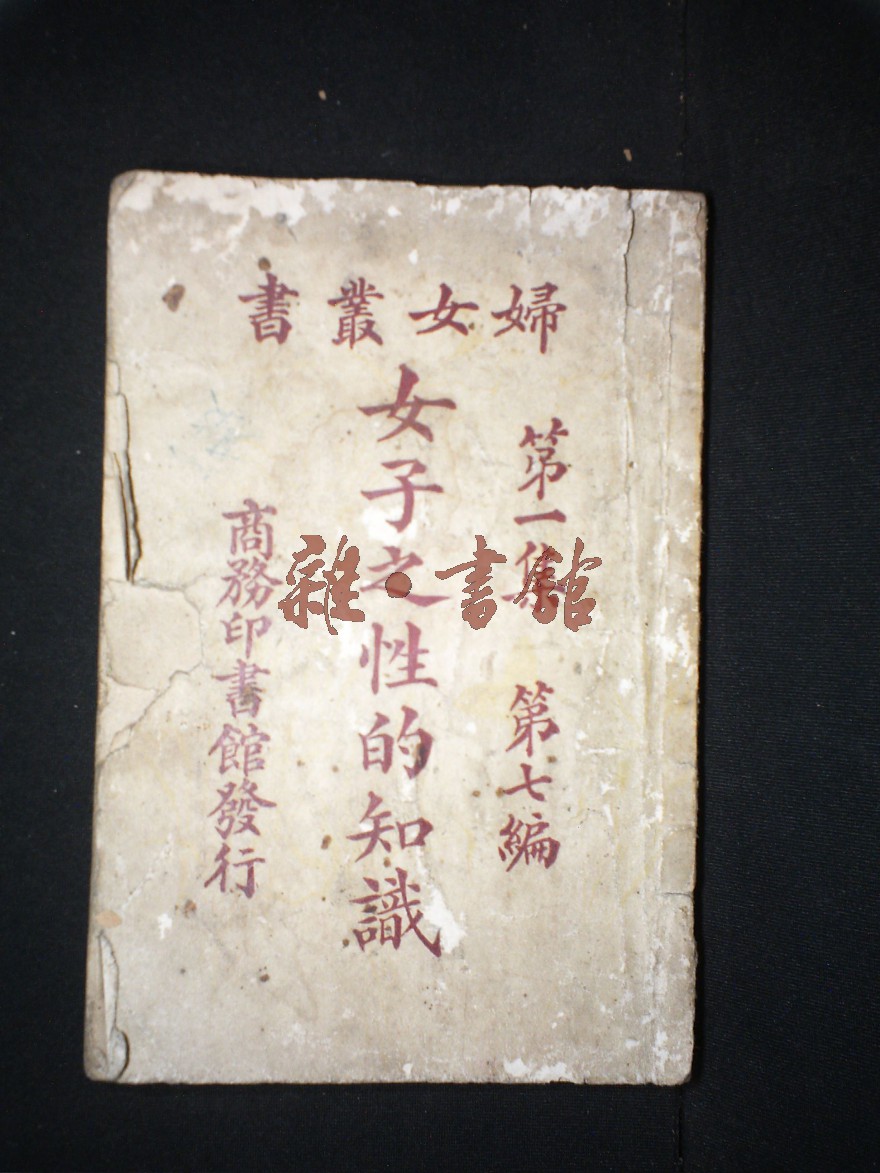 婦女叢書
第一集 第七編
女子之性的知識
商務印書館發行
雜·書館